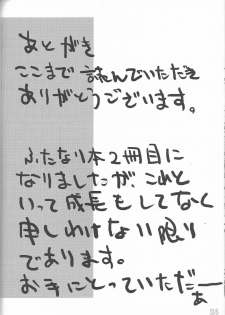 あとがき
ここまで読んでいただき
ありがとうございます。
ふたなり本2冊目に
なりましたが、これと
いって成長もしてなく
申しわけない限り
であります。
お手にとっていただー
あ